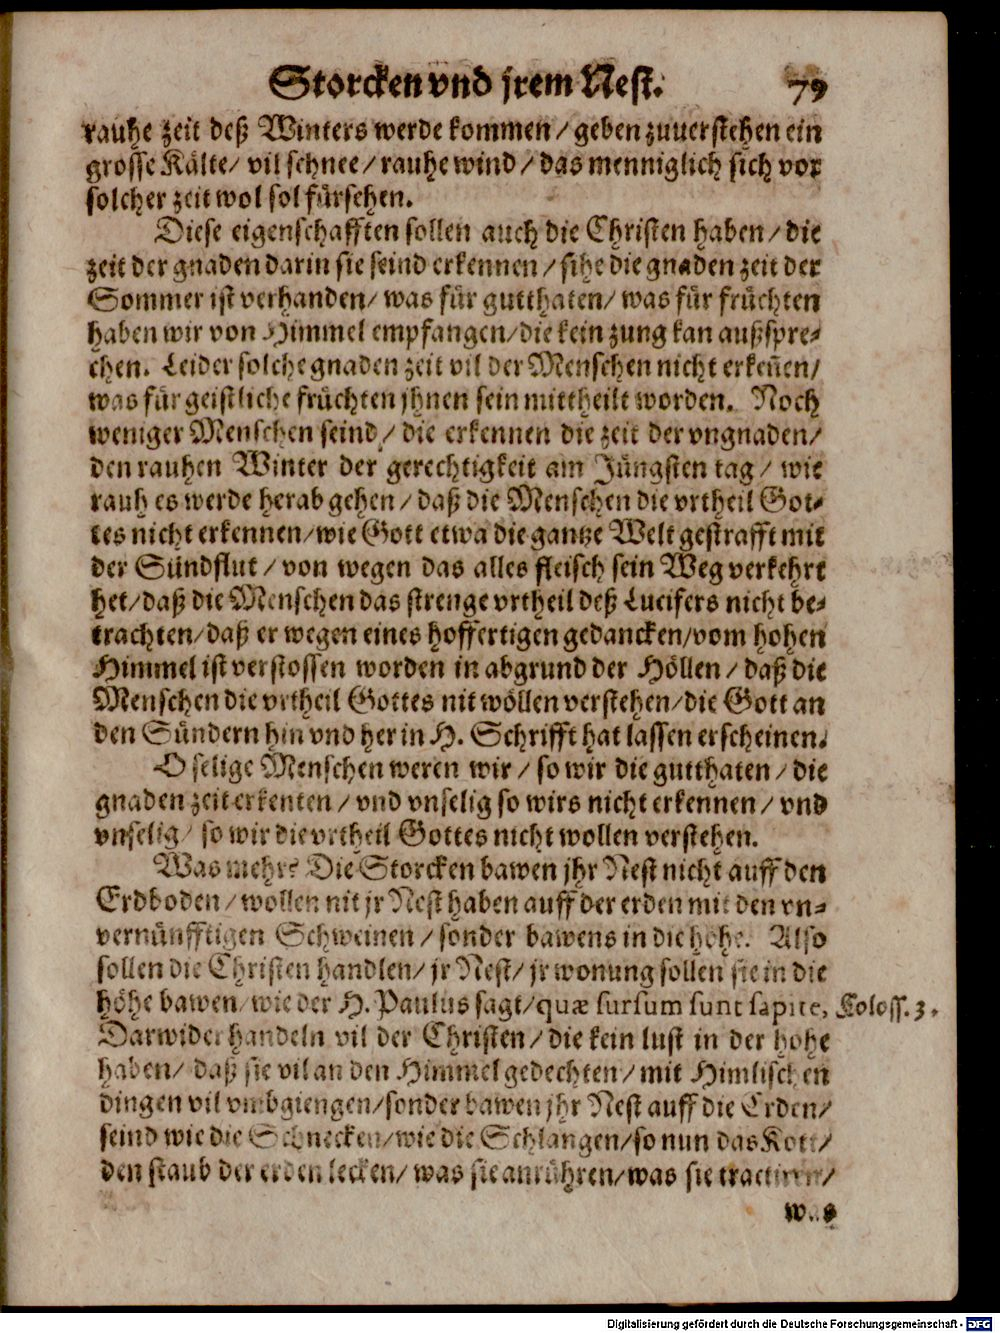 Storcken vnd jrem Nest. 79
rauhe zeit deß Winters werde kommen / geben zuuerstehen ein
grosse Kälte / vil schnee / rauhe wind / das menniglich sich vor
solcher zeit wol sol fürsehen.
Diese eigenschafften sollen auch die Christen haben / die
zeit der gnaden darin sie seind erkennen / sihe die gnaden zeit der
Sommer ist verhanden / was für gutthaten / was für früchten
haben wir von Himmel empfangen / die kein zung kan außspre⸗
chen. Leider solche gnaden zeit vil der Menschen nicht erkeñen /
was für geistliche früchten jhnen sein mittheilt worden. Noch
weniger Menschen seind / die erkennen die zeit der vngnaden /
den rauhen Winter der gerechtigkeit am Jüngsten tag / wie
rauh es werde herab gehen / daß die Menschen die vrtheil Got⸗
tes nicht erkennen / wie Gott etwa die gantze Welt gestrafft mit
der Sündflut / von wegen das alles fleisch sein Weg verkehrt
het / daß die Menschen das strenge vrtheil deß Lucifers nicht be⸗
trachten / daß er wegen eines hoffertigen gedancken / vom hohen
Himmel ist verstossen worden in abgrund der Höllen / daß die
Menschen die vrtheil Gottes nit wöllen verstehen / die Gott an
den Sündern hin vnd her in H. Schrifft hat lassen erscheinen.
O selige Menschen weren wir / so wir die gutthaten / die
gnaden zeit erkenten / vnd vnselig so wirs nicht erkennen / vnd
vnselig / so wir die vrtheil Gottes nicht wollen verstehen.
Was mehr? Die Storcken bawen jhr Nest nicht auff den
Erdboden / wollen nit jr Nest haben auff der erden mit den vn⸗
vernünfftigen Schweinen / sonder bawens in die höhe. Also
sollen die Christen handlen / jr Nest / jr wonung sollen sie in die
höhe bawen / wie der H. Paulus sagt / quæ sursum sunt sapite, Koloss. 3.
Darwider handeln vil der Christen / die kein lust in der höhe
haben / daß sie vil an den Himmel gedechten / mit Himlischen
dingen vil vmbgiengen / sonder bawen jhr Nest auff die Erden /
seind wie die Schnecken / wie die Schlangen / so nun das Kott /
den staub der erden lecken / was sie anrühren / was sie tractiren /
was
Digitalisierung gefördert durch die Deutsche Forschungsgemeinschaft - DFG